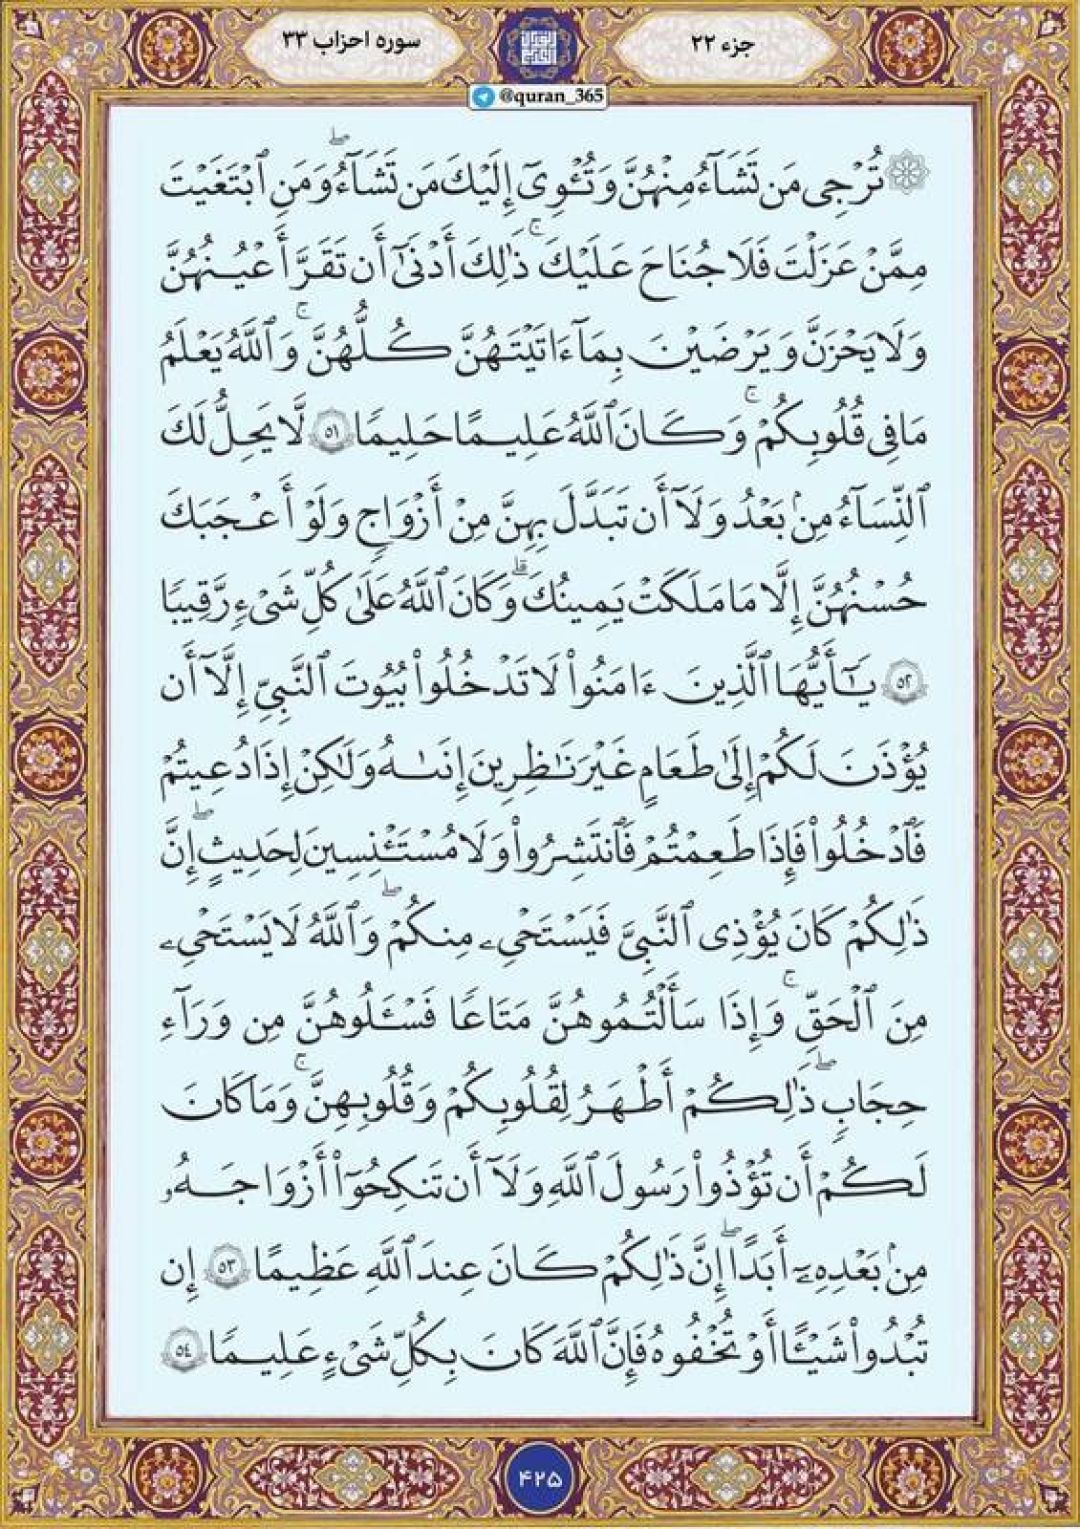 جزء ۲۲
سوره احزاب ۳۳
@quran_365
۞ تُرْجِى مَن تَشَآءُ مِنْهُنَّ وَتُـْٔوِىٓ إِلَيْكَ مَن تَشَآءُ ۖ وَمَنِ ٱبْتَغَيْتَ
مِمَّنْ عَزَلْتَ فَلَا جُنَاحَ عَلَيْكَ ۚ ذَٰلِكَ أَدْنَىٰٓ أَن تَقَرَّ أَعْيُنُهُنَّ
وَلَا يَحْزَنَّ وَيَرْضَيْنَ بِمَآ ءَاتَيْتَهُنَّ كُلُّهُنَّ ۚ وَٱللَّهُ يَعْلَمُ
مَا فِى قُلُوبِكُمْ ۚ وَكَانَ ٱللَّهُ عَلِيمًا حَلِيمًا ٥١ لَّا يَحِلُّ لَكَ
ٱلنِّسَآءُ مِنۢ بَعْدُ وَلَآ أَن تَبَدَّلَ بِهِنَّ مِنْ أَزْوَاجٍ وَلَوْ أَعْجَبَكَ
حُسْنُهُنَّ إِلَّا مَا مَلَكَتْ يَمِينُكَ ۗ وَكَانَ ٱللَّهُ عَلَىٰ كُلِّ شَىْءٍ رَّقِيبًا
٥٢ يَـٰٓأَيُّهَا ٱلَّذِينَ ءَامَنُوا۟ لَا تَدْخُلُوا۟ بُيُوتَ ٱلنَّبِىِّ إِلَّآ أَن
يُؤْذَنَ لَكُمْ إِلَىٰ طَعَامٍ غَيْرَ نَـٰظِرِينَ إِنَىٰهُ وَلَـٰكِنْ إِذَا دُعِيتُمْ
فَٱدْخُلُوا۟ فَإِذَا طَعِمْتُمْ فَٱنتَشِرُوا۟ وَلَا مُسْتَـْٔنِسِينَ لِحَدِيثٍ ۚ إِنَّ
ذَٰلِكُمْ كَانَ يُؤْذِى ٱلنَّبِىَّ فَيَسْتَحْىِۦ مِنكُمْ ۖ وَٱللَّهُ لَا يَسْتَحْىِۦ
مِنَ ٱلْحَقِّ ۚ وَإِذَا سَأَلْتُمُوهُنَّ مَتَاعًا فَسْـَٔلُوهُنَّ مِن وَرَآءِ
حِجَابٍ ۚ ذَٰلِكُمْ أَطْهَرُ لِقُلُوبِكُمْ وَقُلُوبِهِنَّ ۚ وَمَا كَانَ
لَكُمْ أَن تُؤْذُوا۟ رَسُولَ ٱللَّهِ وَلَآ أَن تَنكِحُوٓا۟ أَزْوَاجَهُۥ
مِنۢ بَعْدِهِۦٓ أَبَدًا ۚ إِنَّ ذَٰلِكُمْ كَانَ عِندَ ٱللَّهِ عَظِيمًا ٥٣ إِن
تُبْدُوا۟ شَيْـًٔا أَوْ تُخْفُوهُ فَإِنَّ ٱللَّهَ كَانَ بِكُلِّ شَىْءٍ عَلِيمًا ٥٤
۴۲۵